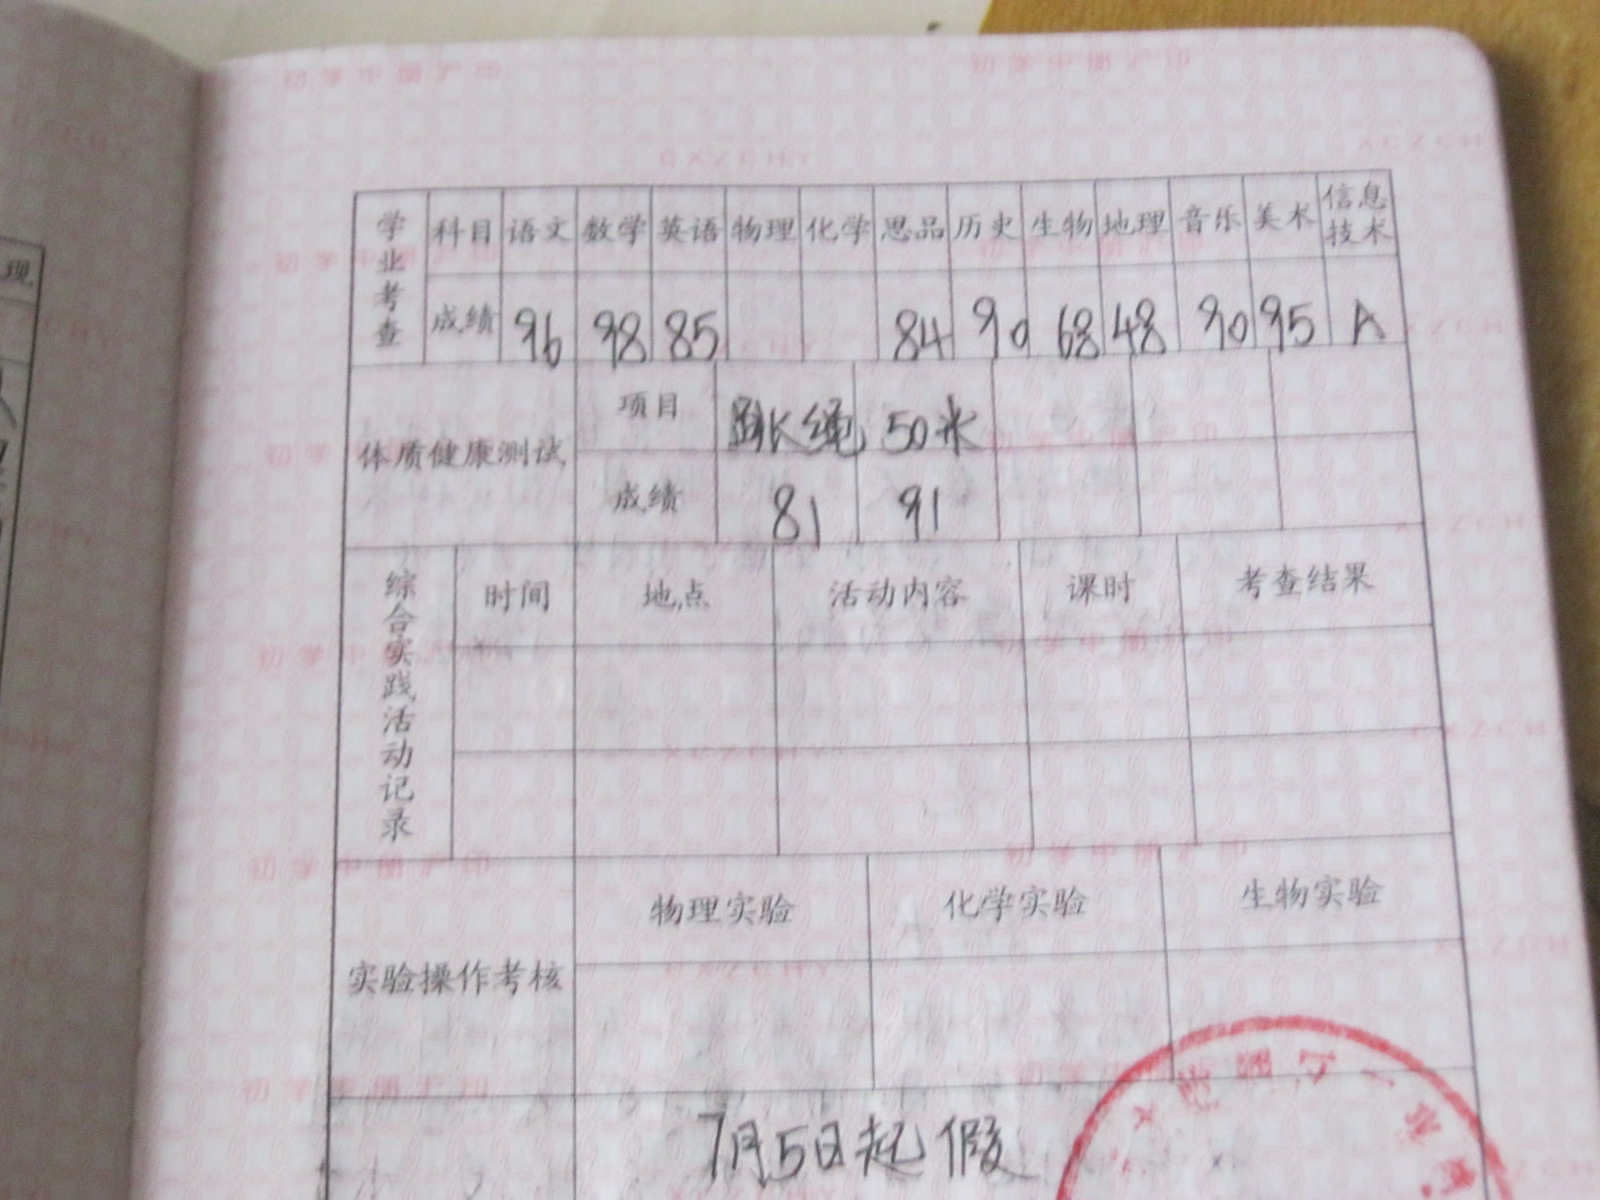 现
学业考查 科目 语文 数学 英语 物理 化学 思品 历史 生物 地理 音乐 美术 信息技术
成绩 96 98 85 84 90 68 48 90 95 A
体质健康测试 项目 跳绳 50米
成绩 81 91
综合实践活动记录 时间 地点 活动内容 课时 考查结果
实验操作考核 物理实验 化学实验 生物实验
7月5日起假